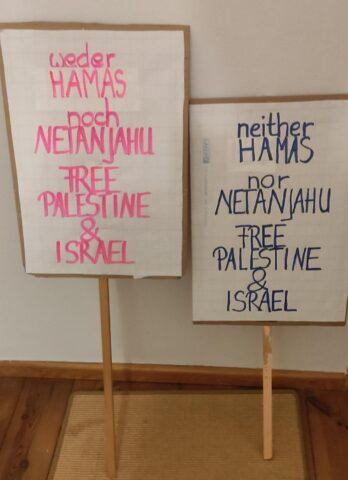 weder
HAMAS
noch
NETANJAHU
FREE
PALESTINE
&
ISRAEL
neither
HAMAS
nor
NETANJAHU
FREE
PALESTINE
&
ISRAEL